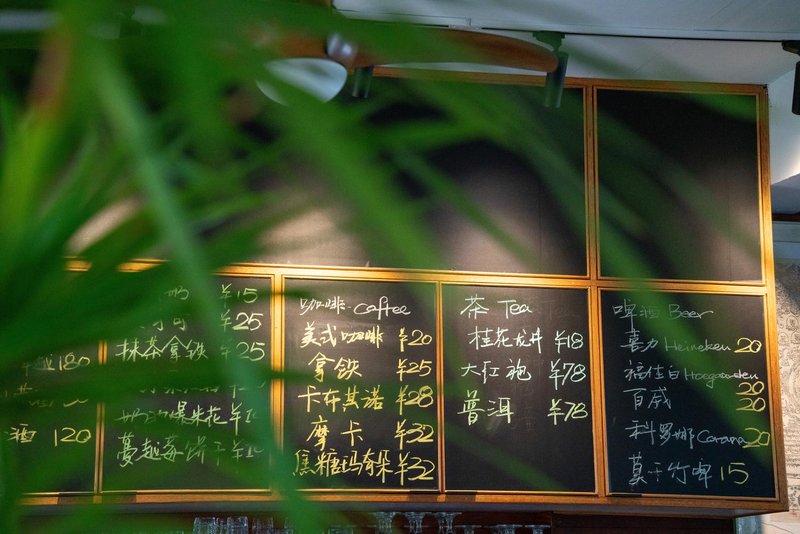 180
酒 120
奶 ¥15
可可 ¥25
抹茶拿铁 ¥25
奶油爆米花
蔓越莓饼干
咖啡 coffee
美式咖啡 ¥20
拿铁 ¥25
卡布其诺 ¥28
摩卡 ¥32
焦糖玛奇朵 ¥32
茶 Tea
桂花龙井 ¥18
大红袍 ¥78
普洱 ¥78
啤酒 Beer
喜力 Heineken 20
福佳白 Hoegaarden 20
百威 20
科罗娜 Corona 20
莫干竹啤 15